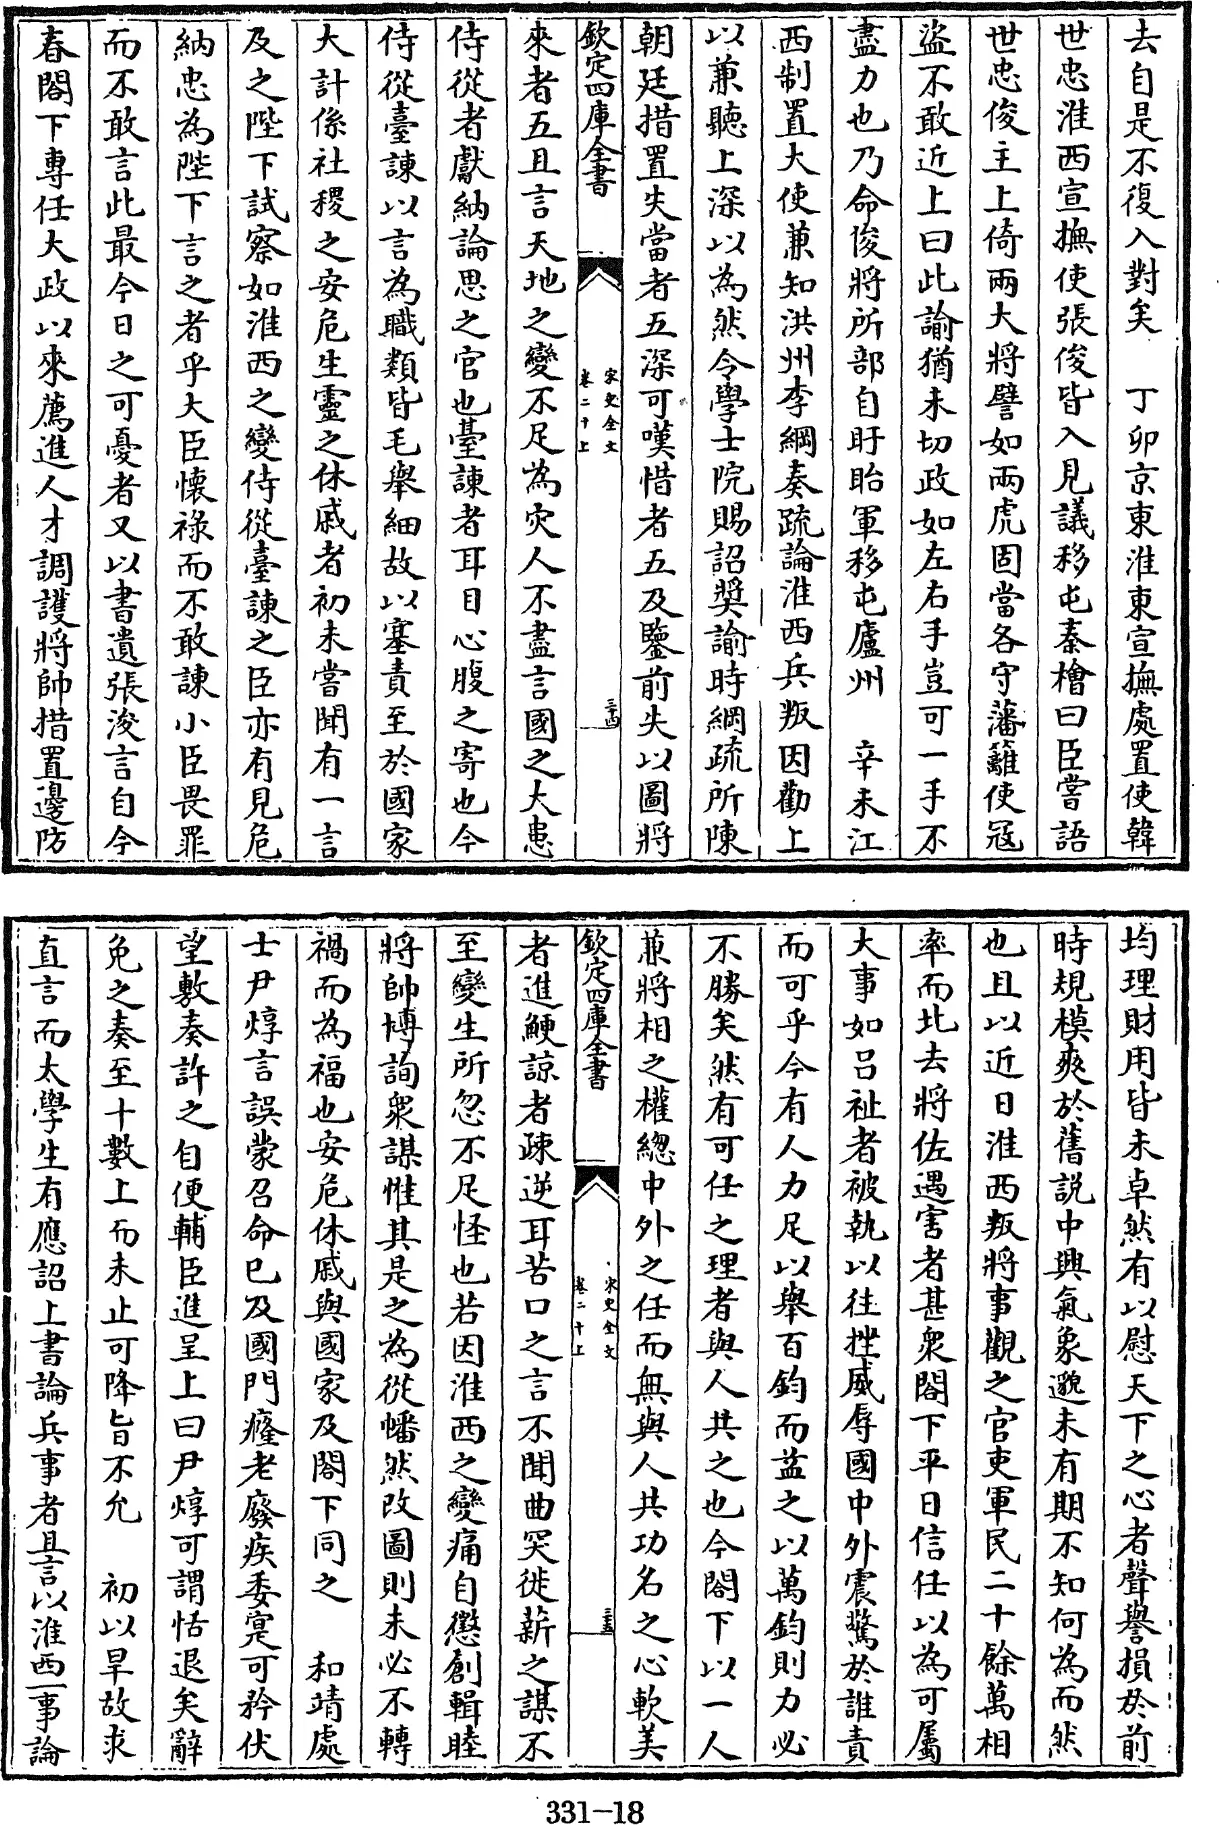 去自是不復入對矣　丁卯京東淮東宣撫處置使韓
世忠淮西宣撫使張俊皆入見議移屯秦檜曰臣嘗語
世忠俊主上倚兩大將譬如兩虎固當各守藩籬使冦
盜不敢近上曰此諭猶未切政如左右手豈可一手不
盡力也乃命俊將所部自盱眙軍移屯廬州　辛未江
西制置大使兼知洪州李綱奏疏論淮西兵叛因勸上
以兼聽上深以為然令學士院賜詔奬諭時綱疏所陳
朝廷措置失當者五深可嘆惜者五及鑒前失以圖將
欽定四庫全書
宋史全文
卷二十上
三十四
來者五且言天地之變不足為灾人不盡言國之大患
侍從者獻納論思之官也臺諫者耳目心腹之寄也今
侍從臺諫以言為職類皆毛舉細故以塞責至於國家
大計係社稷之安危生靈之休戚者初未嘗聞有一言
及之陛下試察如淮西之變侍從臺諫之臣亦有見危
納忠為陛下言之者乎大臣懷祿而不敢諫小臣畏罪
而不敢言此最今日之可憂者又以書遺張浚言自今
春閤下專任大政以來薦進人才調護將帥措置邊防
均理財用皆未卓然有以慰天下之心者聲譽損於前
時規模爽於舊說中興氣象邈未有期不知何為而然
也且以近日淮西叛將事觀之官吏軍民二十餘萬相
率而北去將佐遇害者甚衆閤下平日信任以為可屬
大事如吕祉者被執以往挫威辱國中外震驚於誰責
而可乎今有人力足以舉百鈞而益之以萬鈞則力必
不勝矣然有可任之理者與人共之也今閤下以一人
兼將相之權總中外之任而無與人共功名之心軟美
欽定四庫全書
宋史全文
卷二十上
三十五
者進鯁諒者疎逆耳苦口之言不聞曲突徙薪之謀不
至變生所忽不足怪也若因淮西之變痛自懲創輯睦
將帥博詢衆謀惟其是之為從幡然改圖則未必不轉
禍而為福也安危休戚與國家及閤下同之　和靖處
士尹焞言誤蒙召命已及國門癃老廢疾委寔可矜伏
望敷奏許之自便輔臣進呈上曰尹焞可謂恬退矣辭
免之奏至十數上而未止可降旨不允　初以旱故求
直言而太學生有應詔上書論兵事者且言以淮西一事論
331-18